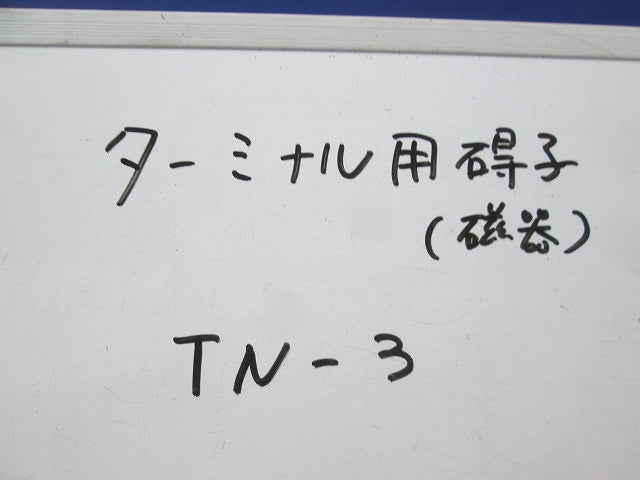 ターミナル用碍子
(磁器)
TN-3